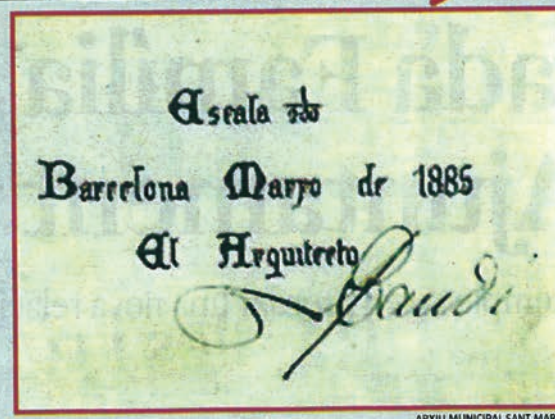 Escala 1/100
Barcelona Marzo de 1885
El Arquitecto
Gaudí
ARXIU MUNICIPAL SANT MAR